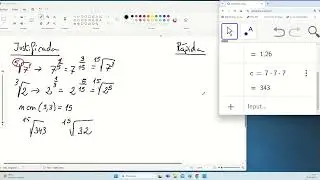 Justificada
Rápida
⁵√7 → 7^(1/5) = 7^(3/15) = ¹⁵√7³
³√2 → 2^(1/3) = 2^(5/15) = ¹⁵√2⁵
mcm(5,3) = 15
¹⁵√343 ¹⁵√32
= 1,26
c = 7 · 7 · 7
= 343
Input...